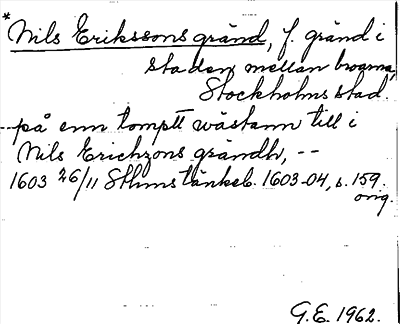 *Nils Erikssons gränd, f. gränd i
staden mellan broarna,
Stockholms stad.
--på enn tomptt wästann till i
Nils Erichzons grändh, --
1603 26/11 Sthms tänkeb. 1603-04, s. 159.
orig.
G.E. 1962.